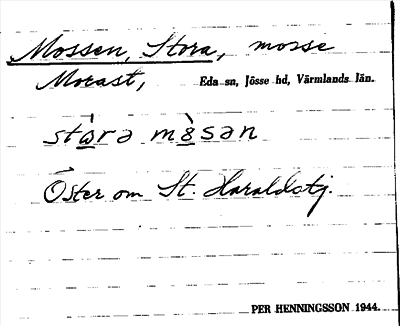 Mossen, Stora, mosse
Morast, Eda sn, Jösse hd, Värmlands län.
stὼrə mꞷ̀sən
Öster om St. Haraldstj.
PER HENNINGSSON 1944.